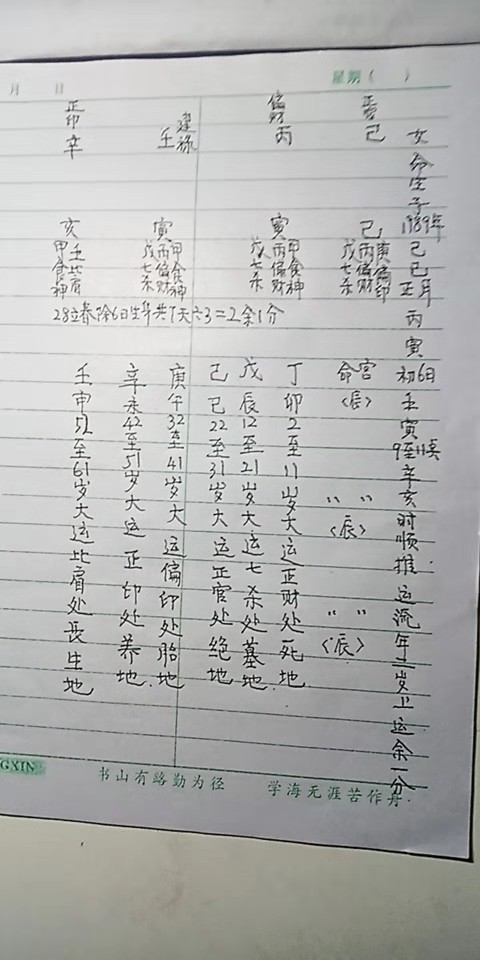 月 日 星期( )
女命生于1989年己巳正月丙寅初6日壬寅9至11点辛亥时顺推运流年二岁上运余一分
正官
己
偏财
丙
建禄
壬
正印
辛
巳
庚偏印
丙偏财
戊七杀
寅
甲食神
丙偏财
戊七杀
寅
甲食神
丙偏财
戊七杀
亥
壬比肩
甲食神
28立春除6日生年共7天六3=2余1分
命宫<辰>
〃 〃<辰>
〃 〃<辰>
丁卯2至11岁大运正财处死地
戊辰12至21岁大运七杀处墓地
己巳22至31岁大运正官处绝地
庚午32至41岁大运偏印处胎地
辛未42至51岁大运正印处养地
壬申52至61岁大运比肩处长生地
GXIN 书山有路勤为径 学海无涯苦作舟